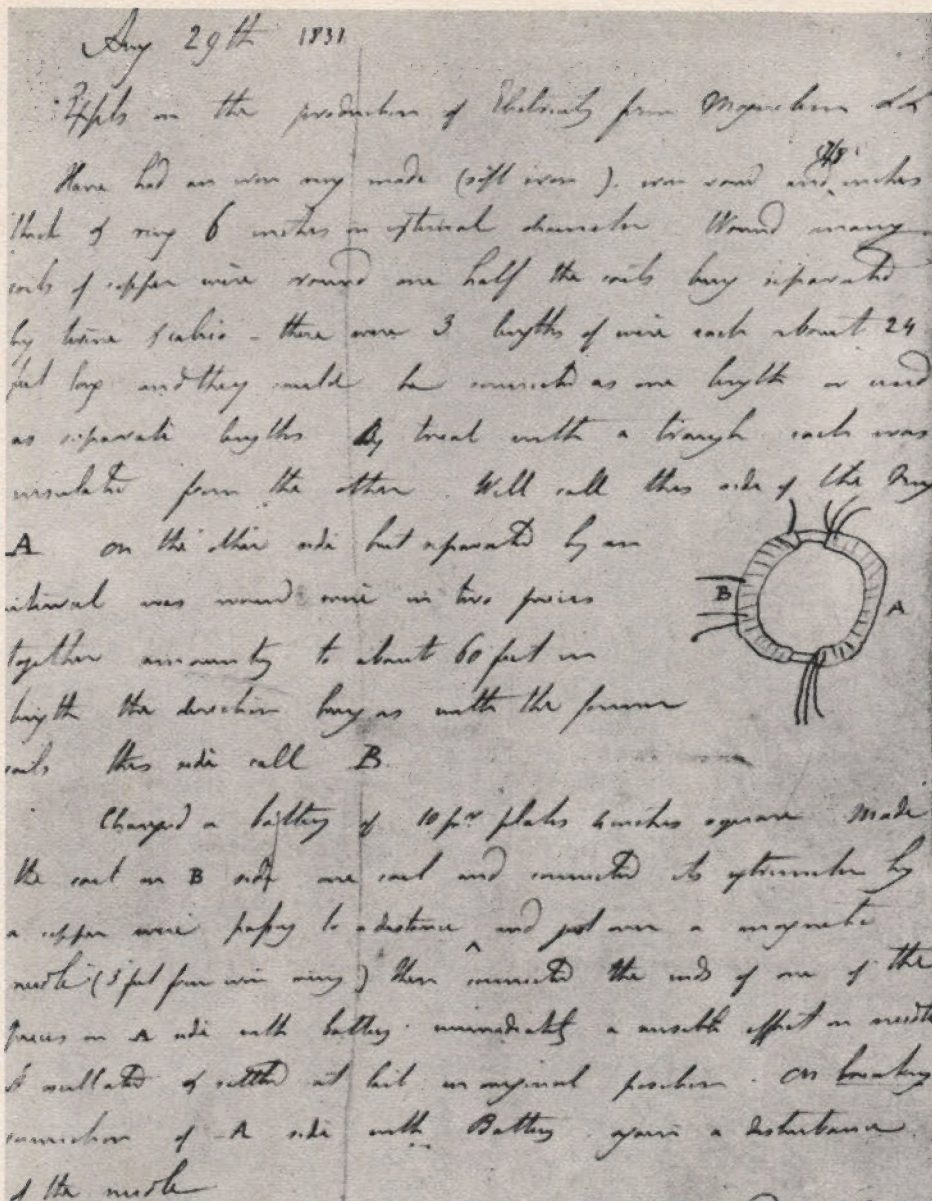 Aug 29th 1831
Expts on the production of Electricity from Magnetism &c &c
Have had an iron ring made (soft iron). iron round and 7/8 inches
thick & ring 6 inches in external diameter Wound many
coils of copper wire round one half the coils being separated
by twine & calico - there were 3 lengths of wire each about 24
feet long and they could be connected as one length or used
as separate lengths By trial with a trough each was
insulated from the other. Will call this side of the ring
A on the other side but separated by an
interval was wound wire in two pieces
together amounting to about 60 feet in
length the direction being as with the former
coils this side call B
B
A
Charged a battery of 10 pr plates 4 inches square Made
the coil on B side one coil and connected its extremities by
a copper wire passing to a distance and just over a magnetic
needle (3 feet from iron ring) then connected the ends of one of the
pieces on A side with battery. immediately a sensible effect on needle
It oscillated & settled at last in original position. On breaking
connection of A side with Battery again a disturbance
of the needle